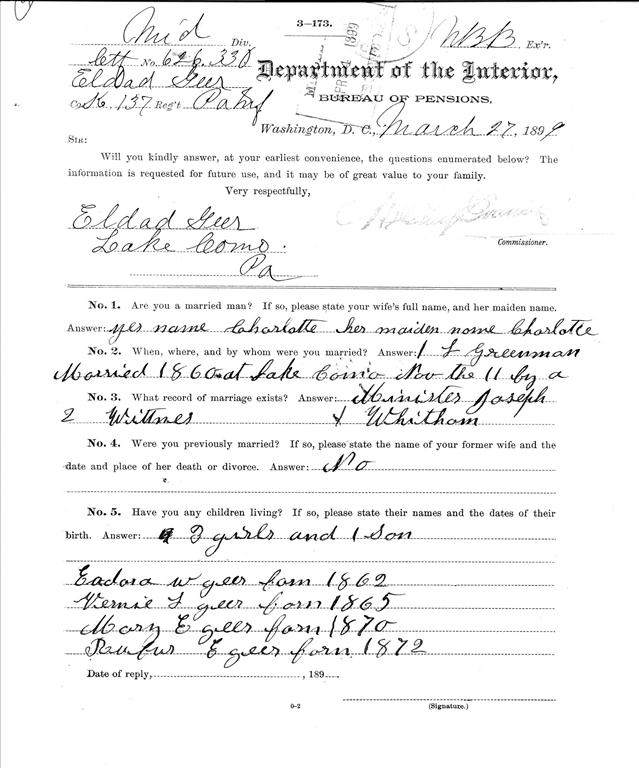 3—173.
Mid Div. NBB Ex'r.
Ctf No. 626.330
Eldad Geer
Co. K, 137 Reg't Pa Inf
APR 1899
Department of the Interior,
BUREAU OF PENSIONS,
Washington, D. C., March 27, 1899
SIR:
Will you kindly answer, at your earliest convenience, the questions enumerated below? The
information is requested for future use, and it may be of great value to your family.
Very respectfully,
Eldad Geer
Lake Como.
Pa
Commissioner.
No. 1. Are you a married man? If so, please state your wife's full name, and her maiden name.
Answer: yes name Charlotte her maiden name Charlotte
No. 2. When, where, and by whom were you married? Answer: L Greenman
Married 1860 at Lake Como Nov the 11 by a
No. 3. What record of marriage exists? Answer: Minister Joseph
2 Wittnes & Whitham
No. 4. Were you previously married? If so, please state the name of your former wife and the
date and place of her death or divorce. Answer: No
No. 5. Have you any children living? If so, please state their names and the dates of their
birth. Answer: 3 girls and 1 Son
Eadora W geer forn 1862
Vernie L geer forn 1865
Mary E geer forn 1870
Rufus E geer forn 1872
Date of reply, , 189
0-2 (Signature.)